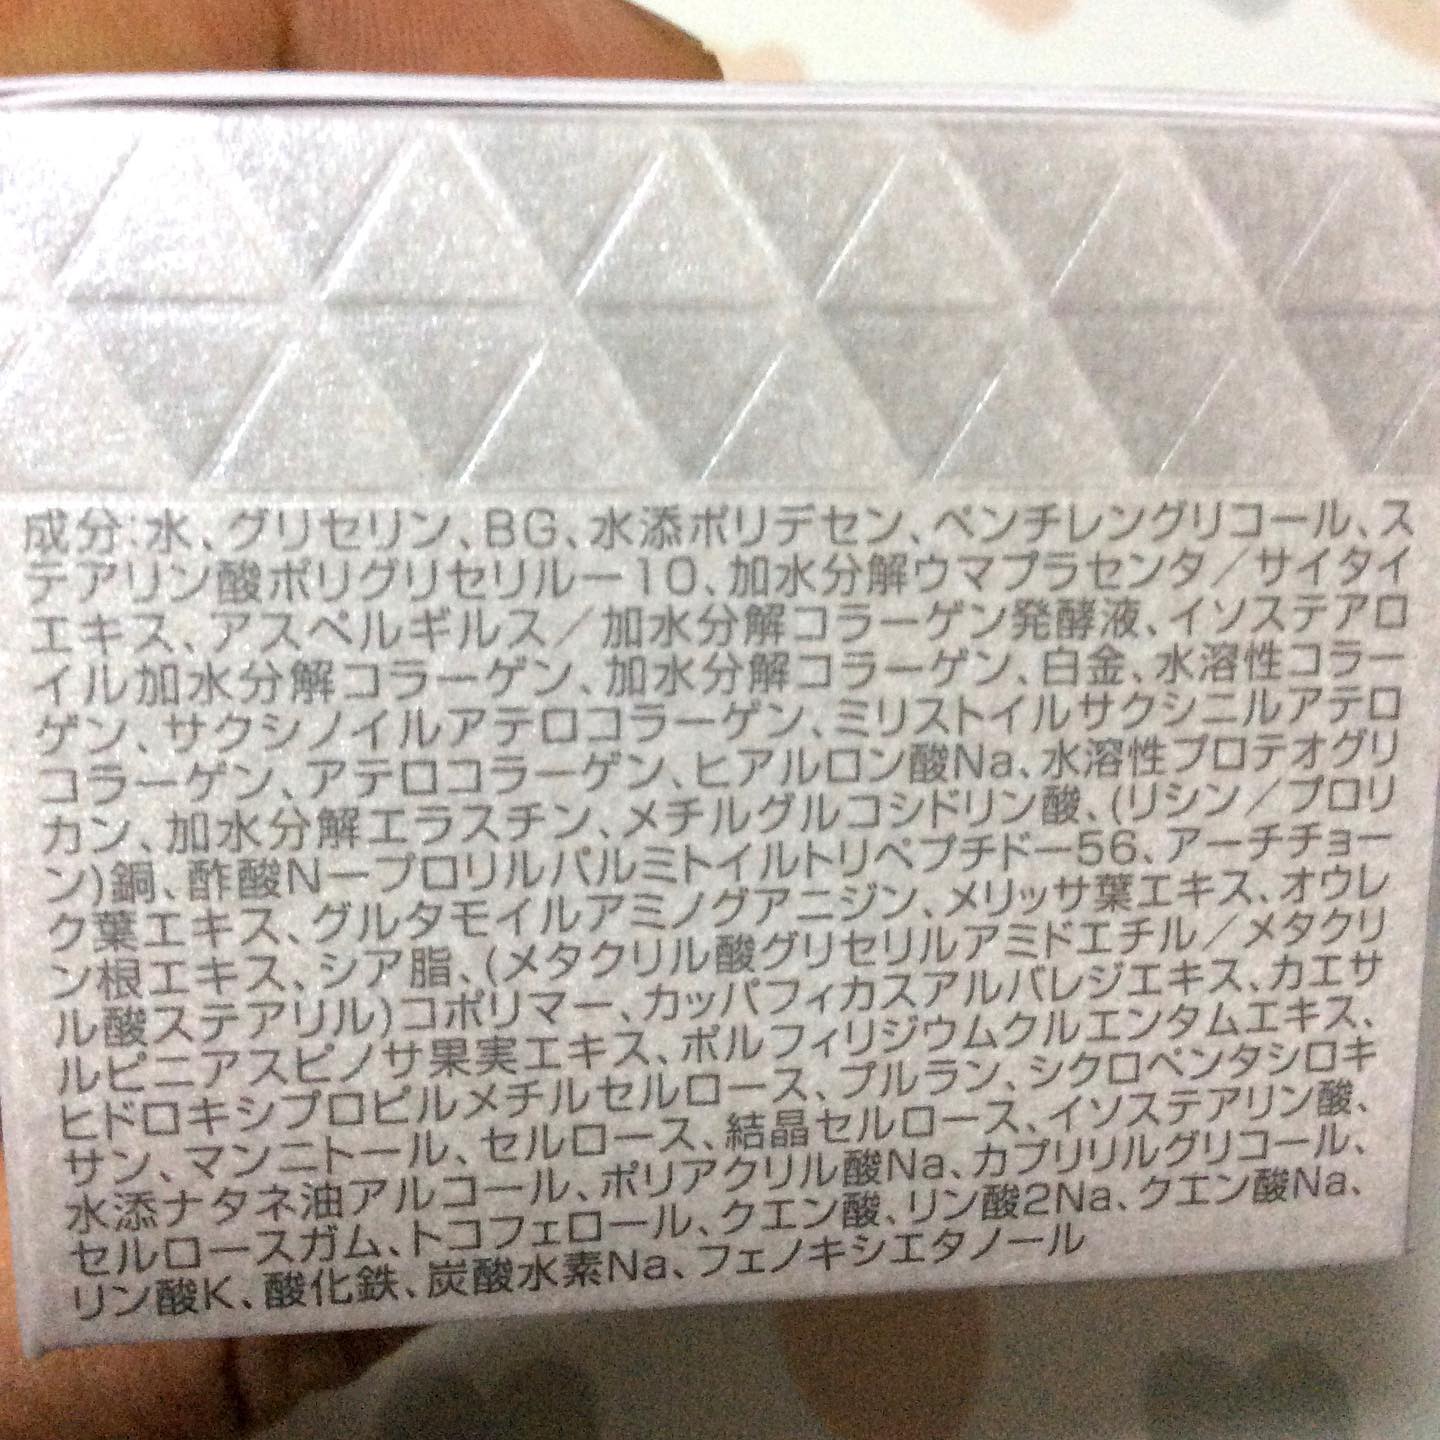 成分：水、グリセリン、BG、水添ポリデセン、ペンチレングリコール、ス
テアリン酸ポリグリセリル－10、加水分解ウマプラセンタ／サイタイ
エキス、アスペルギルス／加水分解コラーゲン発酵液、イソステアロ
イル加水分解コラーゲン、加水分解コラーゲン、白金、水溶性コラー
ゲン、サクシノイルアテロコラーゲン、ミリストイルサクシニルアテロ
コラーゲン、アテロコラーゲン、ヒアルロン酸Na、水溶性プロテオグリ
カン、加水分解エラスチン、メチルグルコシドリン酸、(リシン／プロリ
ン)銅、酢酸N－プロリルパルミトイルトリペプチド－56、アーチチョー
ク葉エキス、グルタモイルアミノグアニジン、メリッサ葉エキス、オウレ
ン根エキス、シア脂、(メタクリル酸グリセリルアミドエチル／メタクリ
ル酸ステアリル)コポリマー、カッパフィカスアルバレジエキス、カエサ
ルピニアスピノサ果実エキス、ポルフィリジウムクルエンタムエキス、
ヒドロキシプロピルメチルセルロース、プルラン、シクロペンタシロキ
サン、マンニトール、セルロース、結晶セルロース、イソステアリン酸、
水添ナタネ油アルコール、ポリアクリル酸Na、カプリリルグリコール、
セルロースガム、トコフェロール、クエン酸、リン酸2Na、クエン酸Na、
リン酸K、酸化鉄、炭酸水素Na、フェノキシエタノール